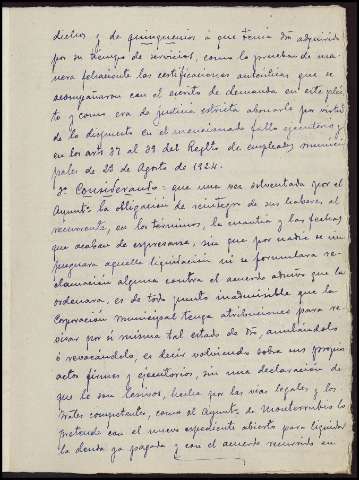 dichos y de quinquenios á que tenia dro adquirido
por su tiempo de servicios, como lo prueban de ma-
nera fehaciente las certificaciones autenticas que se
acompañaron con el escrito de demanda en este plei-
to y como era de justicia estricta abonarle por virtud
de lo dispuesto en el mencionado fallo ejecutorio y
en los arts 37 al 39 del Reglto de empleados munici-
pales de 23 de Agosto de 1924.
3º Considerando: que una vez solventada por el
Ayuntº la obligación de reintegro de sus haberes, al
recurrente, en los términos, la cuantia y las fechas
que acaban de expresarse, sin que por nadie se im-
pugnara aquella liquidación ni se formulara re-
clamación alguna contra el acuerdo admtvo que la
ordenara, es de todo punto inadmisible que la
Corporación municipal tenga atribuciones para re-
visar por si misma tal estado de dro, anulandolo
ó revocandolo, es decir volviendo sobre sus propios
actos firmes y ejecutorios, sin una declaración de
que le son lesivos, hecha por las vias legales y los
Trales competentes, como el Ayuntº de Monterrubio lo
pretende con el nuevo expediente abierto para liquidar
la deuda ya pagada y con el acuerdo recurrido en